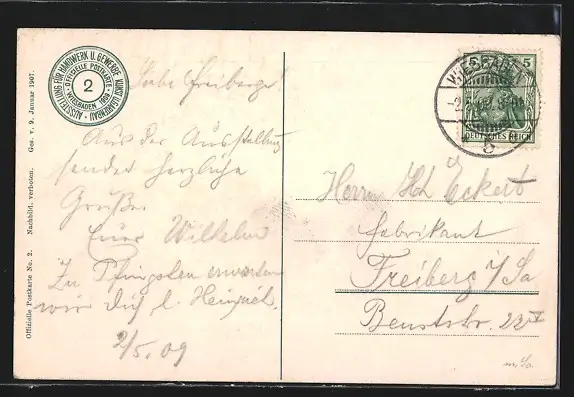 AUSSTELLUNG FÜR HANDWERK U. GEWERBE KUNST U. GARTENBAU
OFFICIELLE POSTKARTE
2
WIESBADEN 1909
Officielle Postkarte No. 2. Nachbild. verboten. Ges. v. 9. Januar 1907.
Liebe Freiberger!
Aus der Ausstellung
sendet herzliche
Grüße
Euer Wilhelm
Zu Pfingsten erwarten
wir Dich l. Heinzel.
2/5.09
WIESBADEN
5 5
DEUTSCHES REICH
Herrn Hch Eckert
Fabrikant
Freiberg i/Sa
Beuststr.